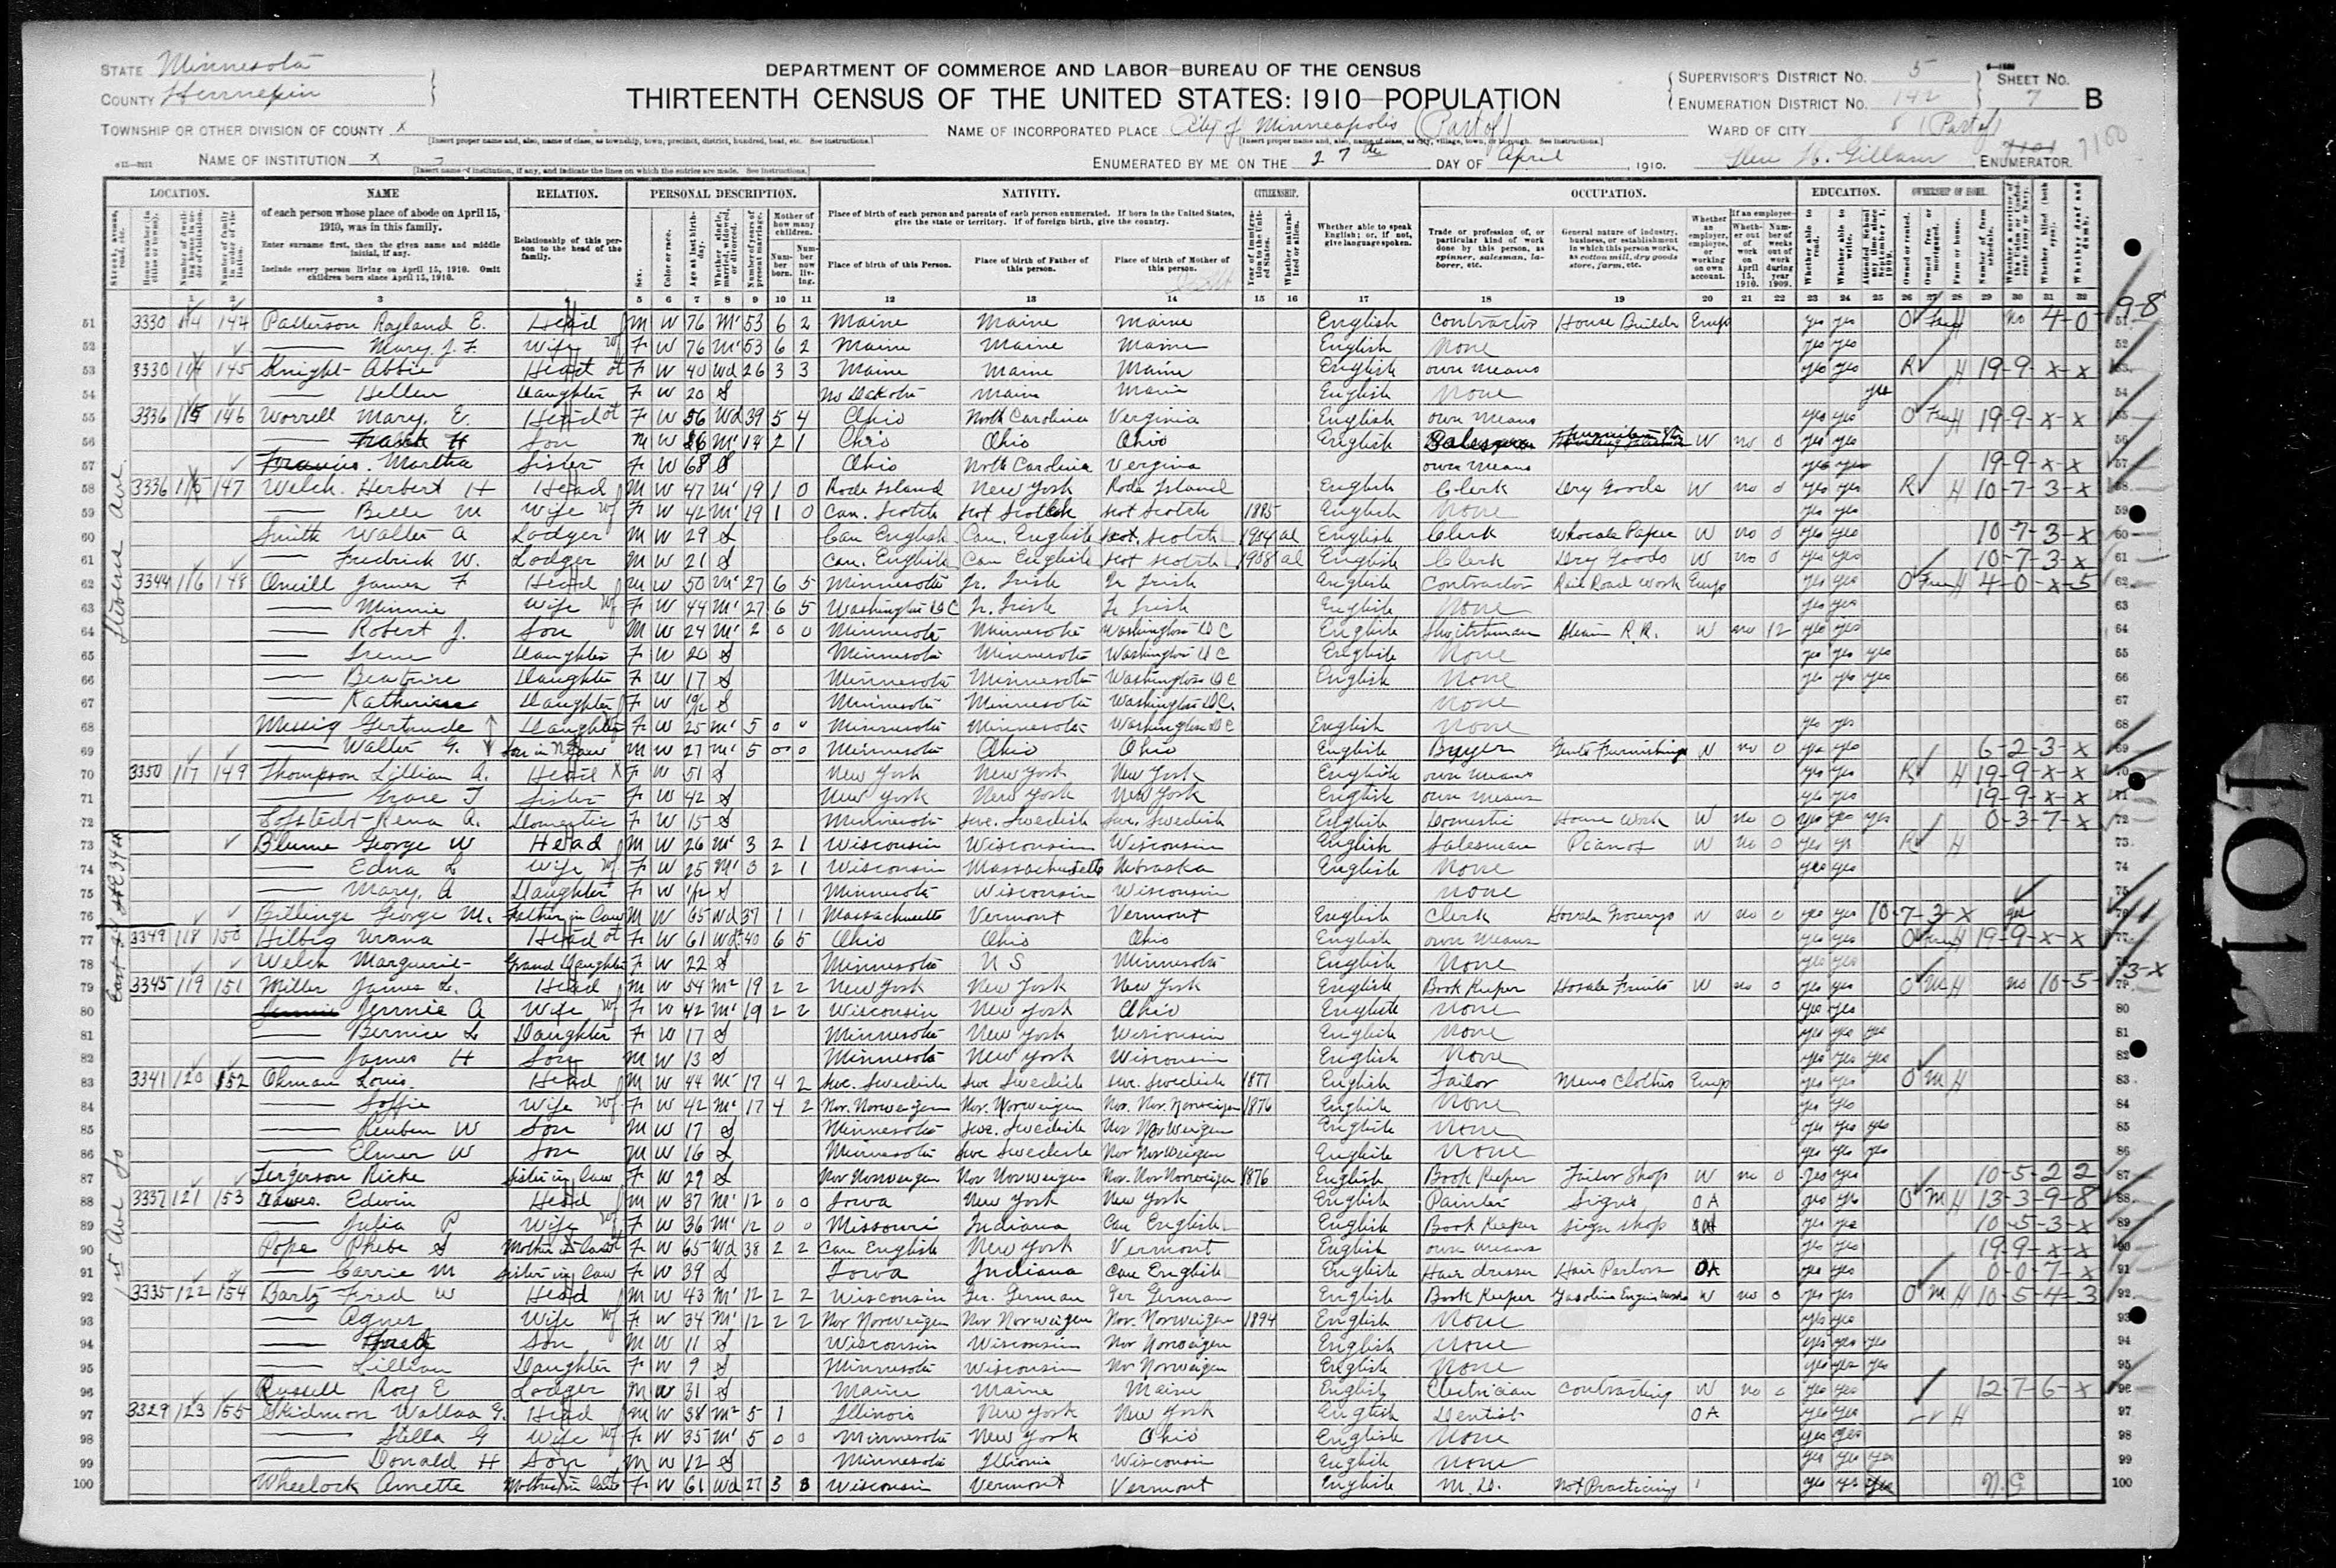 STATE Minnesota
COUNTY Hennepin
DEPARTMENT OF COMMERCE AND LABOR-BUREAU OF THE CENSUS
THIRTEENTH CENSUS OF THE UNITED STATES: 1910-POPULATION
SUPERVISOR'S DISTRICT NO. 5
ENUMERATION DISTRICT NO. 142
SHEET NO. 7 B
TOWNSHIP OR OTHER DIVISION OF COUNTY x
NAME OF INCORPORATED PLACE City of Minneapolis (Part of)
WARD OF CITY 8 (Part of)
NAME OF INSTITUTION x
ENUMERATED BY ME ON THE 27th DAY OF April, 1910.
ENUMERATOR.
7100
LOCATION. NAME RELATION. PERSONAL DESCRIPTION. NATIVITY. CITIZENSHIP. OCCUPATION. EDUCATION. OWNERSHIP OF HOME.
of each person whose place of abode on April 15, 1910, was in this family.
Enter surname first, then the given name and middle initial, if any.
Include every person living on April 15, 1910. Omit children born since April 15, 1910.
Relationship of this person to the head of the family.
Place of birth of each person and parents of each person enumerated. If born in the United States, give the state or territory. If of foreign birth, give the country.
Place of birth of this Person. Place of birth of Father of this person. Place of birth of Mother of this person.
Whether able to speak English; or, if not, give language spoken.
Trade or profession of, or particular kind of work done by this person, as spinner, salesman, laborer, etc.
General nature of industry, business, or establishment in which this person works, as cotton mill, dry goods store, farm, etc.
1 2 3 4 5 6 7 8 9 10 11 12 13 14 15 16 17 18 19 20 21 22 23 24 25 26 27 28 29 30 31 32
Stevens Ave.
51 3330 114 144 Patterson Rayland E. Head M W 76 M1 53 6 2 Maine Maine Maine English Contractor House Builder Emp yes yes O Free H no 4-0-9-8
52 Mary J. F. Wife F W 76 M1 53 6 2 Maine Maine Maine English None yes yes
53 3330 114 145 Knight Abbie Head F W 40 Wd 26 3 3 Maine Maine Maine English own means yes yes R H 19-9-x-x
54 Hellen Daughter F W 20 S No Dakota Maine Maine English None yes
55 3336 115 146 Worrell Mary. E. Head F W 56 Wd 39 5 4 Ohio North Carolina Verginia English own means yes yes O Free H 19-9-x-x
56 Frank H Son M W 36 M1 18 2 1 Ohio Ohio Ohio English Salesman W no 0 yes yes
57 Martha Sister F W 68 S Ohio North Carolina Vergina own means yes yes 19-9-x-x
58 3336 115 147 Welch. Herbert H Head M W 47 M1 19 1 0 Rode Island New York Rode Island English Clerk Dry Goods W no 0 yes yes R H 10-7-3-x
59 Belle M Wife F W 42 M1 19 1 0 Can. Scotch Scot Scotch Scot Scotch 1885 English None yes yes
60 Smith Walter A Lodger M W 29 S Can English Can. English Scot. Scotch 1904 al English Clerk Whocale Paper W no 0 yes yes 10-7-3-x
61 Fredrick W. Lodger M W 21 S Can. English Can English Scot Scotch 1908 al English Clerk Dry Goods W no 0 yes yes 10-7-3-x
62 3344 116 148 Oneill James F Head M W 50 M1 27 6 5 Minnesota Ir. Irish Ir Irish English Contractor Rail Road Work Emp yes yes O Free H 4-0-x-5
63 Minnie Wife F W 44 M1 27 6 5 Washington DC Ir. Irish Ir Irish English None yes yes
64 Robert J. Son M W 24 M1 2 0 0 Minnesota Minnesota Washington DC English Switchman Steam R.R. W no 12 yes yes
65 Irene Daughter F W 20 S Minnesota Minnesota Washington DC English None yes yes yes
66 Beatrice Daughter F W 17 S Minnesota Minnesota Washington DC English None yes yes yes
67 Katherine Daughter F W S Minnesota Minnesota Washington DC. None
68 Messig Gertrude Daughter F W 25 M1 5 0 0 Minnesota Minnesota Washington DC English None yes yes
69 Walter G. Son in Law M W 27 M1 5 0 0 Minnesota Ohio Ohio English Buyer Gents Furnishings W no 0 yes yes 6-2-3-x
70 3350 117 149 Thompson Lillian A. Head F W 51 S New York New York New York English own means yes yes R H 19-9-x-x
71 Grace T Sister F W 42 S New York New York New York English own means yes yes 19-9-x-x
72 Sofstedt Rena A. Domestic F W 15 S Minnesota Swe. Swedish Swe. Swedish English Domestic House Work W no 0 yes yes yes 0-3-7-x
73 Blume George W Head M W 26 M1 3 2 1 Wisconsin Wisconsin Wisconsin English Salesman Pianos W no 0 yes yes R H
74 Edna L Wife F W 25 M1 3 2 1 Wisconsin Massachusetts Nebraska English None yes yes
75 Mary. A Daughter F W S Minnesota Wisconsin Wisconsin none
76 Billings George M. Father in Law M W 65 Wd 37 1 1 Massachusetts Vermont Vermont English Clerk W no 0 yes yes 10-7-3-x yes
77 3349 118 150 Hilbig Urana Head F W 61 Wd 40 6 5 Ohio Ohio Ohio English own means yes yes O Free H 19-9-x-x
78 Welch Marguerit Grand Daughter F W 22 S Minnesota U S Minnesota English None yes yes
79 3345 119 151 Miller James L. Head M W 54 M2 19 2 2 New York New York New York English Book Keeper Hosale Fruits W no 0 yes yes O M H no 10-5-3-x
80 Jennie A Wife F W 42 M1 19 2 2 Wisconsin New York Ohio English None yes yes
81 Bernice L Daughter F W 17 S Minnesota New York Wisconsin English None yes yes yes
82 James H Son M W 13 S Minnesota New York Wisconsin English None yes yes yes
83 3341 120 152 Ohman Louis. Head M W 44 M1 17 4 2 Swe. Swedish Swe Swedish Swe. Swedish 1877 English Tailor Mens Clothes Emp yes yes O M H
84 Soffie Wife F W 42 M1 17 4 2 Nor. Norweigen Nor. Norweigen Nor. Nor. Norweigen 1876 English None yes yes
85 Reuben W Son M W 17 S Minnesota Swe. Swedish Nor Norweigen English None yes yes yes
86 Elmer W Son M W 16 S Minnesota Swe Swedish Nor Norweigen English None yes yes yes
87 Fergerson Ricke Sister in Law F W 29 S Nor Norweigen Nor Norweigen Nor. Nor Norweigen 1876 English Book Keeper Tailor Shop W no 0 yes yes 10-5-2-2
88 3337 121 153 Dawes. Edwin Head M W 37 M1 12 0 0 Iowa New York New York English Painter Signs OA yes yes O M H 13-3-9-8
89 Julia P Wife F W 36 M1 12 0 0 Missouri Indiana Can English English Book Keeper Sign Shop yes yes 10-5-3-x
90 Pope Phebe S Mother in Law F W 65 Wd 38 2 2 Can English New York Vermont English own means yes yes 19-9-x-x
91 Carrie M Sister in Law F W 39 S Iowa Indiana Can English English Hair dresser Hair Parlors OA yes yes 0-0-7-x
92 3335 122 154 Bartz Fred W Head M W 43 M1 12 2 2 Wisconsin Ger. German Ger German English Book Keeper Gasoline Engin Works W no 0 yes yes O M H 10-5-4-3
93 Agnes Wife F W 34 M1 12 2 2 Nor Norweigen Nor Norweigen Nor. Norweigen 1894 English None yes yes
94 Son M W 11 S Wisconsin Wisconsin Nor Norweigen English None yes yes yes
95 Lillian Daughter F W 9 S Minnesota Wisconsin Nor Norweigen English None yes yes yes
96 Russell Roy E Lodger M W 31 S Maine Maine Maine English Electrician Contracting W no 0 yes yes 12-7-6-x
97 3329 123 155 Skidmon Wallaa G. Head M W 38 M2 5 1 Illinois New York New York English Dentist OA yes yes H
98 Stella G Wife F W 35 M1 5 0 0 Minnesota New York Ohio English None yes yes
99 Donald H Son M W 12 S Minnesota Illinois Wisconsin English None yes yes yes
100 Wheelock Annette Mother in Law F W 61 Wd 27 3 3 Wisconsin Vermont Vermont English M.D. Not Practicing yes yes N.G.
1st Ave So
101